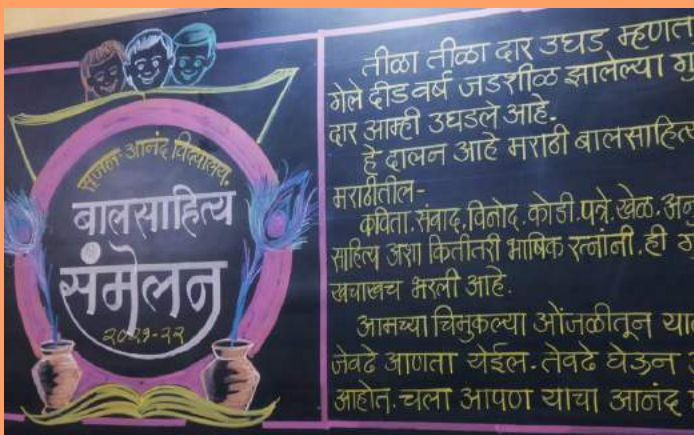 सृजन-आनंद विद्यालय.
बालसाहित्य
संमेलन
२०२१-२२
तीळा तीळा दार उघड म्हणत
गेले दीड वर्ष जडशीळ झालेल्या
दार आम्ही उघडले आहे.
हे दालन आहे मराठी बालसाहित्य
मराठीतील-
कविता.संवाद.विनोद.कोडी.पत्रे.खेळ.
साहित्य अशा कितीतरी भाषिक रत्नांनी.ही
खचाखच भरली आहे.
आमच्या चिमुकल्या ओंजळीतून या
जेवढे आणता येईल.तेवढे घेऊन
आहोत.चला आपण याचा आनंद